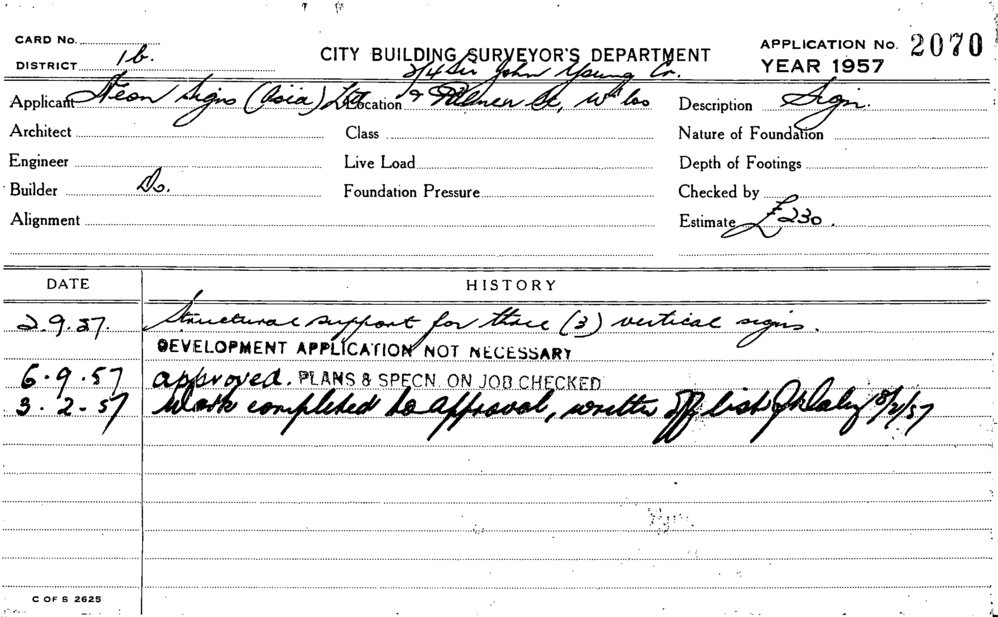 CARD No.
DISTRICT 1b.
CITY BUILDING SURVEYOR'S DEPARTMENT
APPLICATION No. 2070
YEAR 1957
2/4 Sir John Young Cr.
Applicant Neon Signs (Asia) Ltd Location & Palmer St, W'loo Description Sign.
Architect Class Nature of Foundation
Engineer Live Load Depth of Footings
Builder Do. Foundation Pressure Checked by
Alignment Estimate £230.
DATE HISTORY
2.9.57. Structural support for three (3) vertical signs.
DEVELOPMENT APPLICATION NOT NECESSARY
6.9.57 approved. PLANS & SPECN. ON JOB CHECKED
3.2.57 Work completed to approval, written off list
C OF S 2625